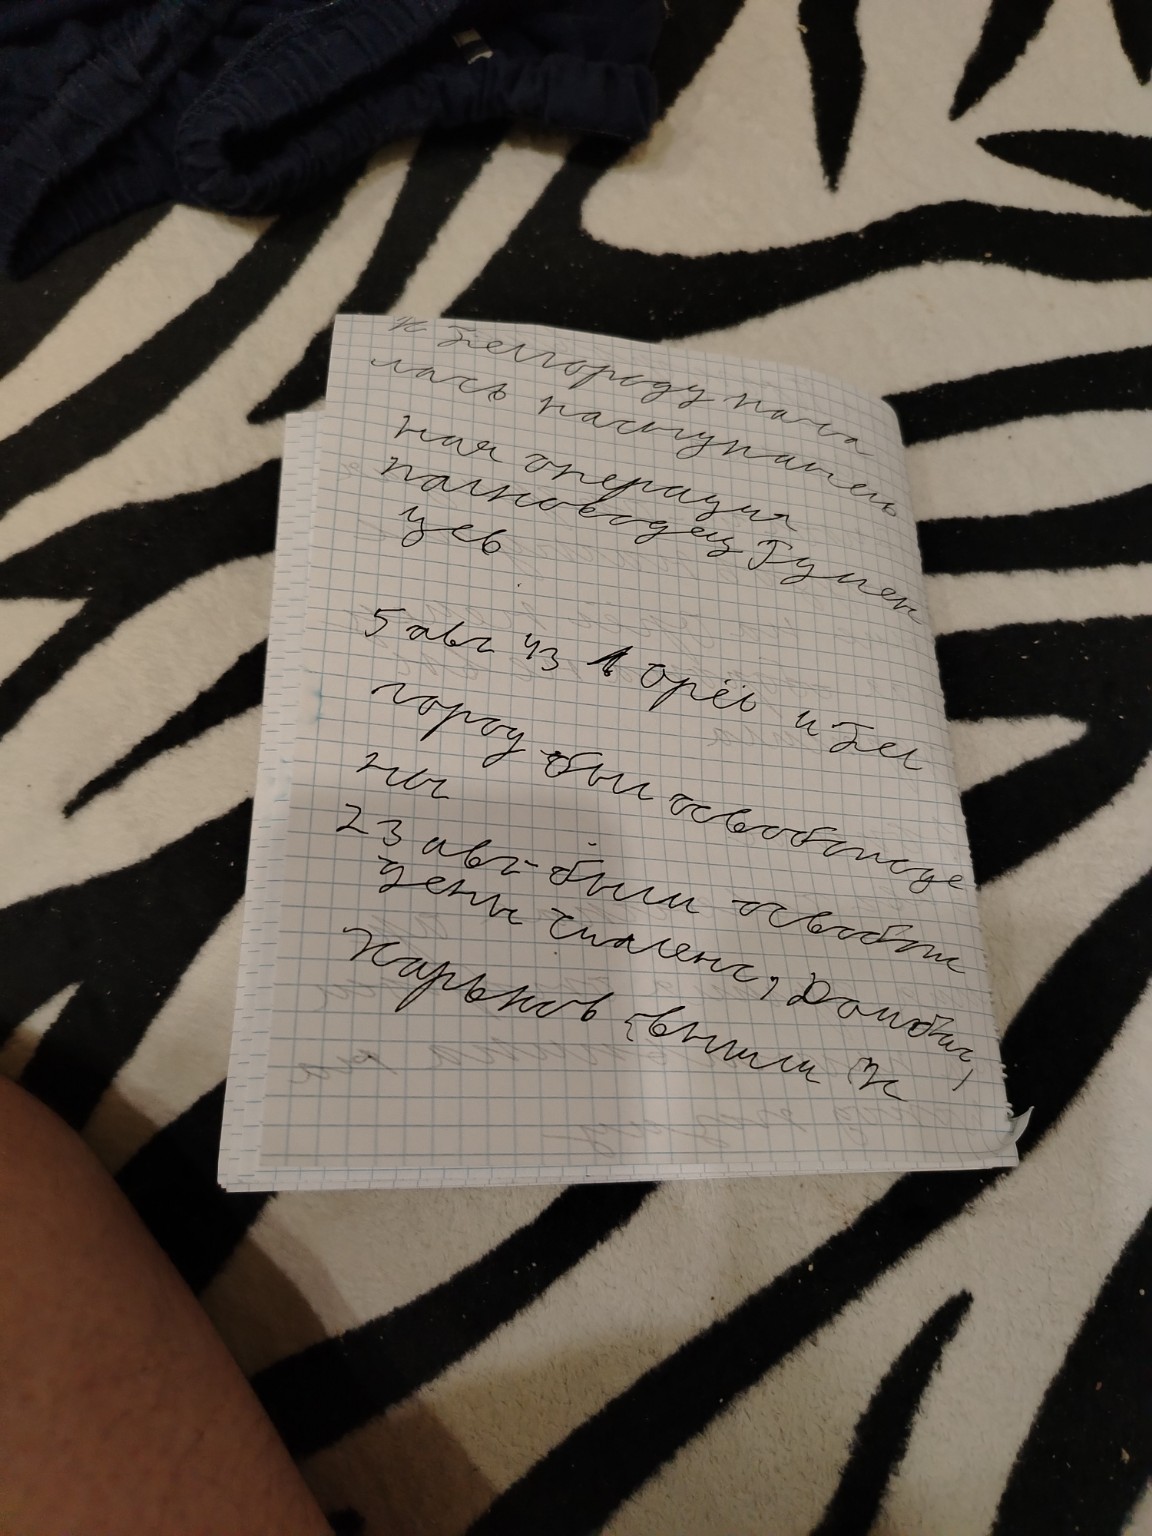 к Белгороду нача
лась наступатель
ная операция
полководец Румян
цев
5 авг 43 Орёл и Бел
город был освобожде
ны
23 авг были освобож
дены смоленс, Донбас,
Харьков (вышли к